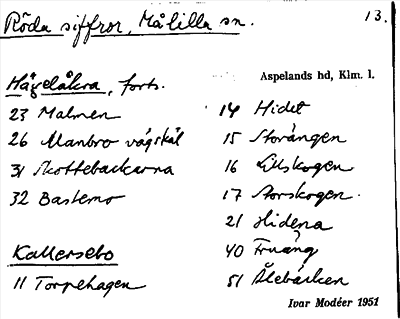 Röda siffror, Målilla sn.
13.
Aspelands hd, Klm. l.
Hägelåkra, forts.
23 Malmen
26 Manbro vägskäl
31 Skottebackarna
32 Bastemo
Kallersebo
11 Torpehagen
14 Hidet
15 Storängen
16 Lillskogen
17 Storskogen
21 Hidena
40 Fruäng
51 Ålebäcken
Ivar Modéer 1951